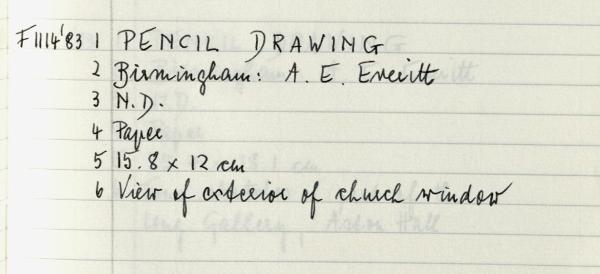 F1114'83 1 PENCIL DRAWING
2 Birmingham: A. E. Everitt
3 N.D.
4 Paper
5 15.8 x 12 cm
6 View of exterior of church window